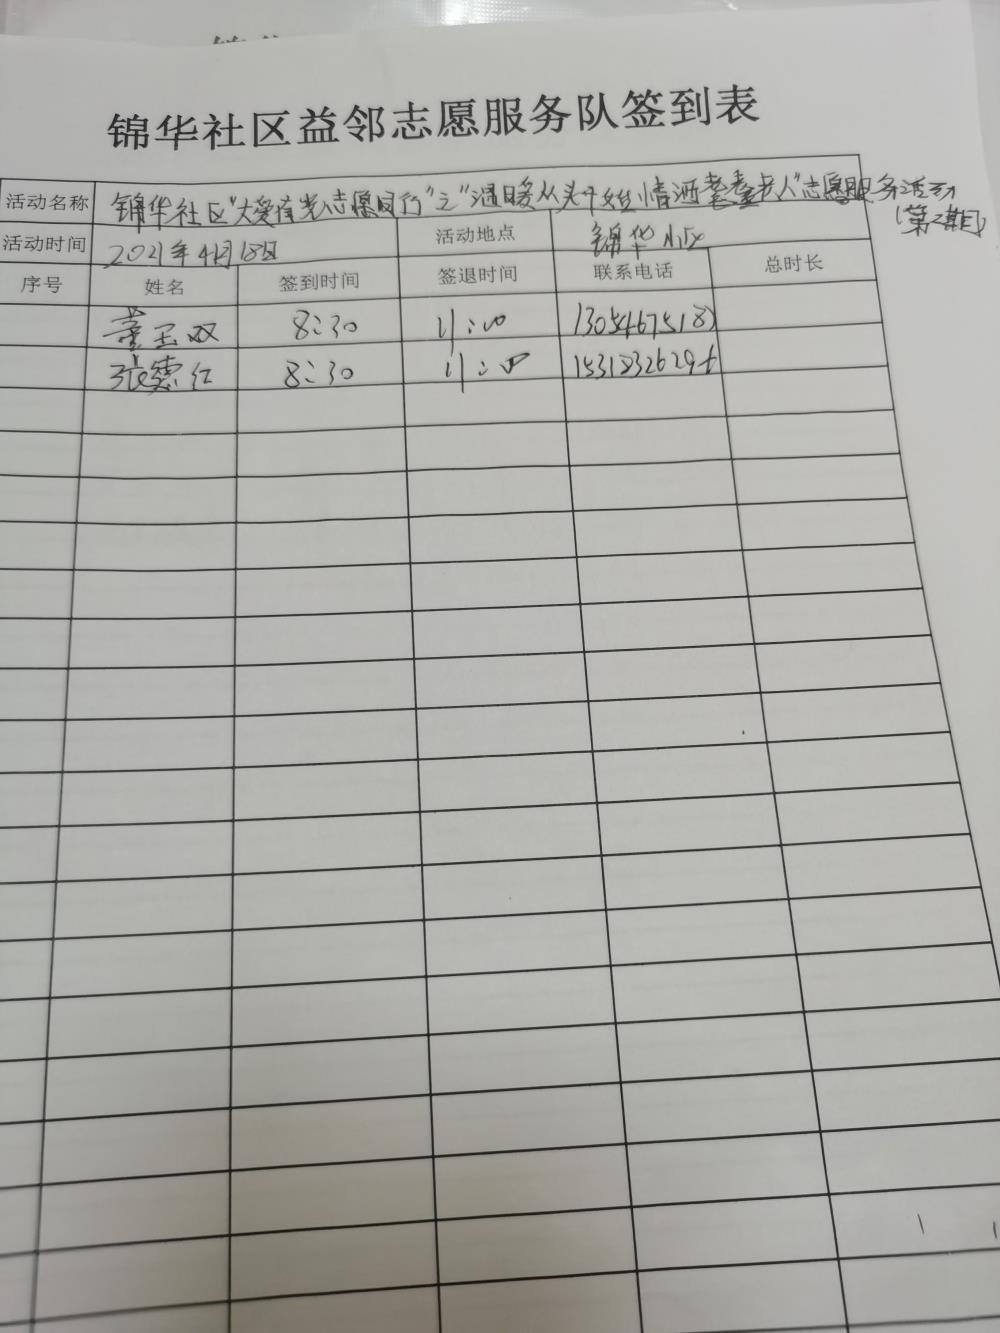 锦华社区益邻志愿服务队签到表
活动名称 锦华社区"大爱有光志愿同行"之"温暖从头 情洒老人"志愿服务活动
(第二期)
活动时间 2021年4月18日 活动地点 锦华小区
序号 姓名 签到时间 签退时间 联系电话 总时长
董玉双 8:30 11:00
张德红 8:30 11:00